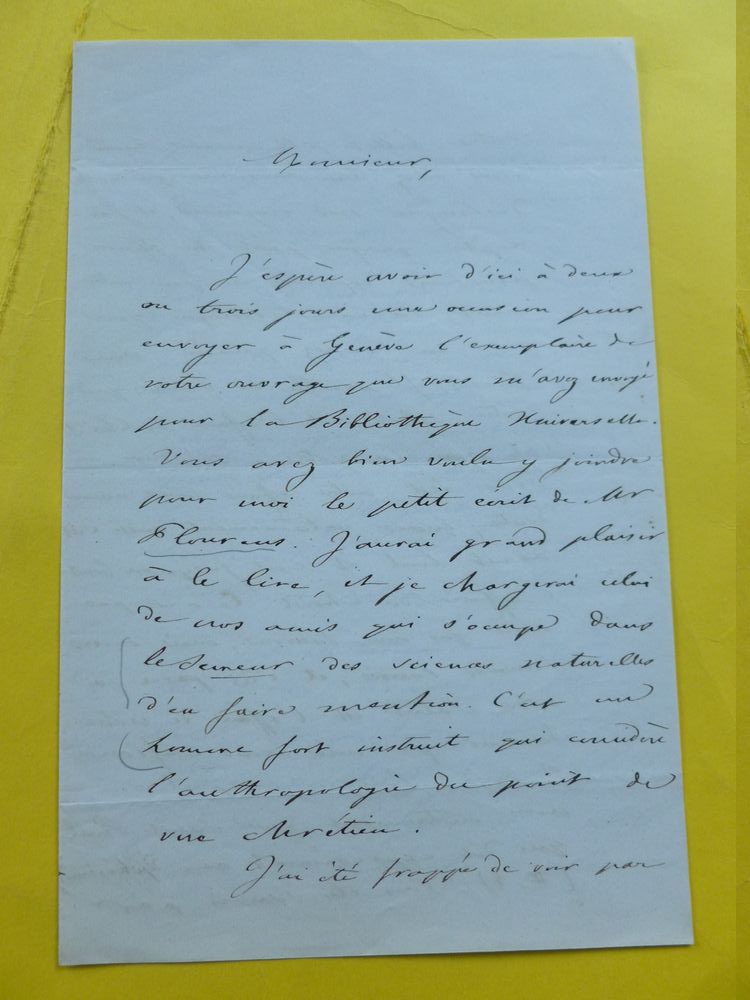 Monsieur,
J'espère avoir d'ici à deux
ou trois jours une occasion pour
envoyer à Genève l'exemplaire de
votre ouvrage que vous m'avez envoyé
pour la Bibliothèque Universelle.
Vous avez bien voulu y joindre
pour moi le petit écrit de Mr
Flourens. J'aurai grand plaisir
à le lire, et je chargerai celui
de nos amis qui s'occupe dans
le Semeur des sciences naturelles
d'en faire mention. C'est un
homme fort instruit qui considère
l'anthropologie du point de
vue chrétien.
J'ai été frappé de voir par